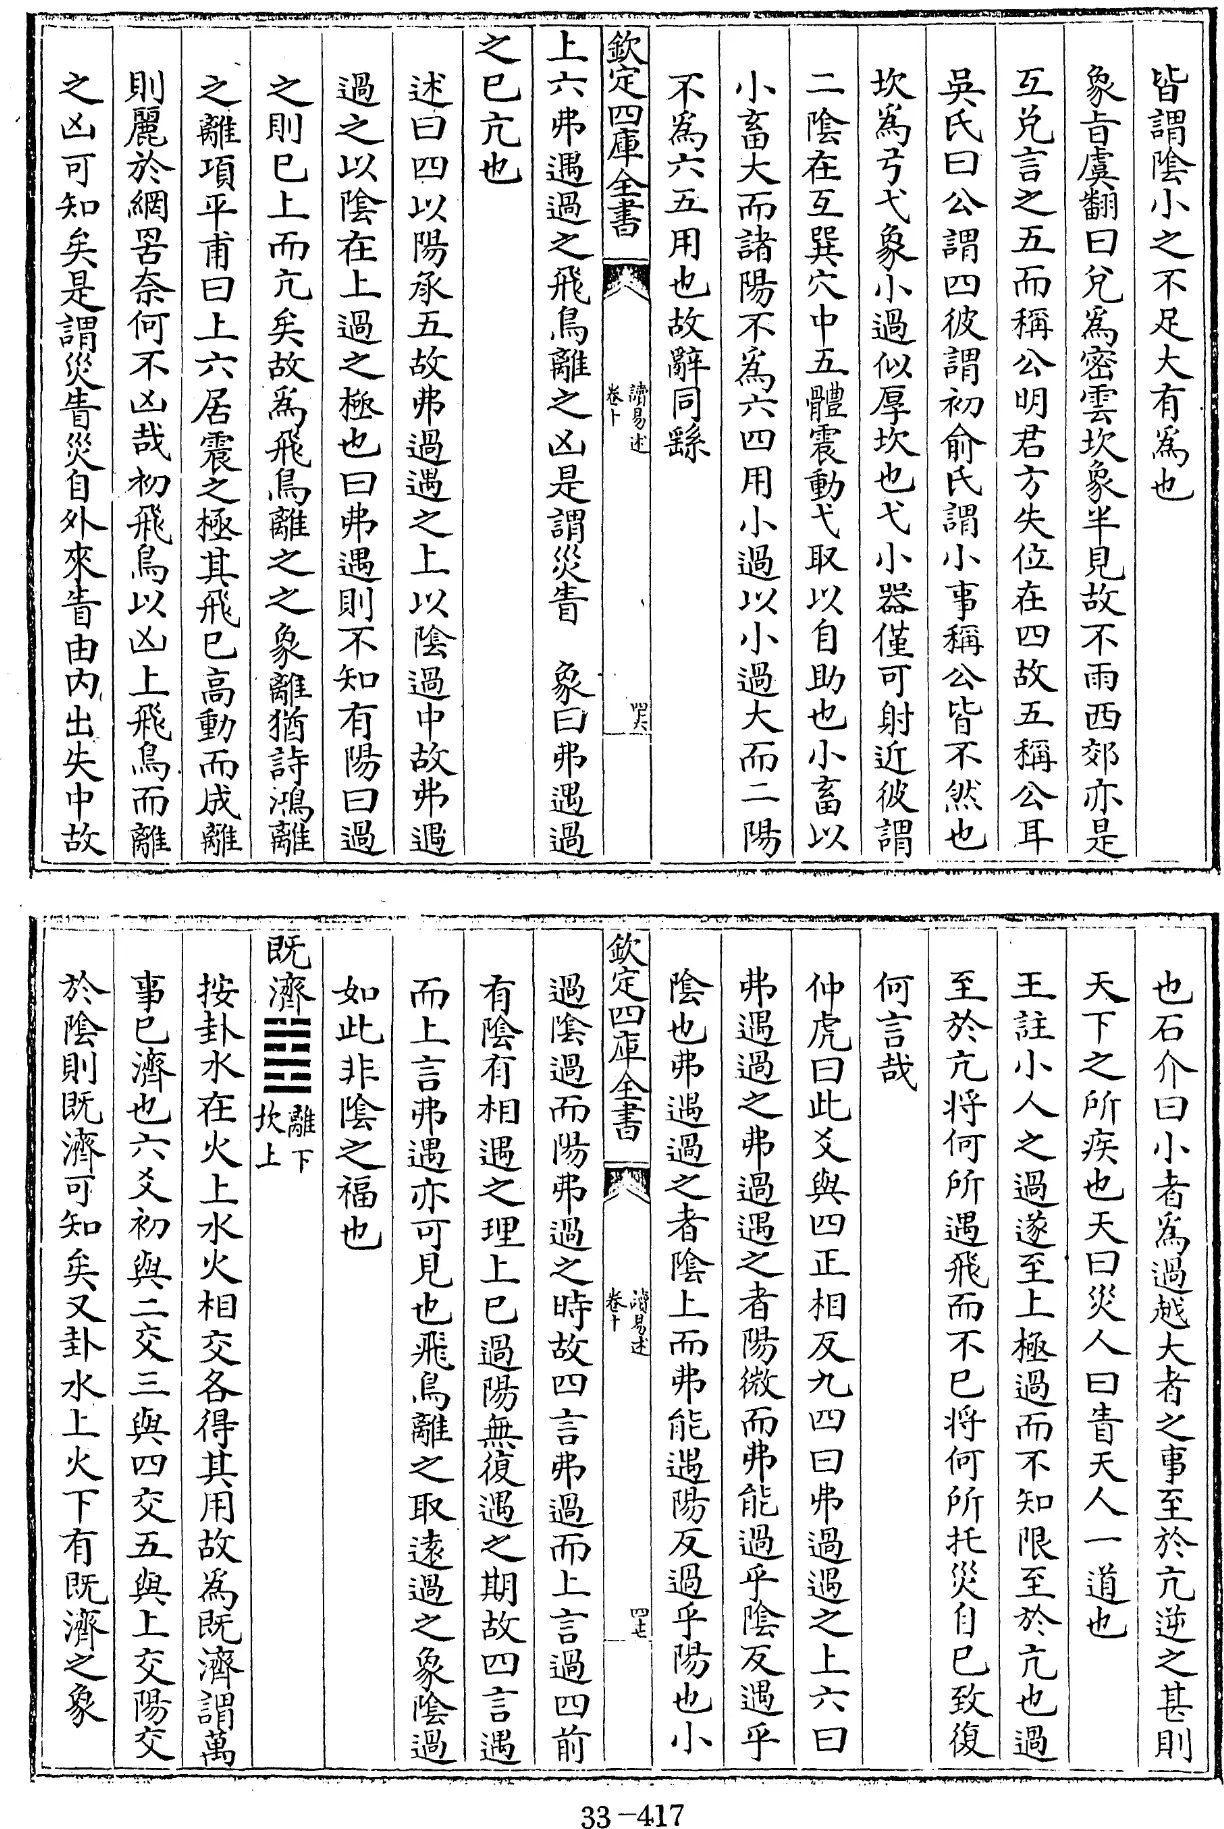 皆謂陰小之不足大有爲也
象旨虞翻曰兌爲密雲坎象半見故不雨西郊亦是
互兌言之五而稱公明君方失位在四故五稱公耳
吳氏曰公謂四彼謂初俞氏謂小事稱公皆不然也
坎爲弓弋象小過似厚坎也弋小器僅可射近彼謂
二陰在互巽穴中五體震動弋取以自助也小畜以
小畜大而諸陽不爲六四用小過以小過大而二陽
不爲六五用也故辭同繇
欽定四庫全書
讀易述
卷十
四六
上六弗遇過之飛鳥離之凶是謂災眚　象曰弗遇過
之已亢也
述曰四以陽承五故弗過遇之上以陰過中故弗遇
過之以陰在上過之極也曰弗遇則不知有陽曰過
之則已上而亢矣故爲飛鳥離之之象離猶詩鴻離
之離項平甫曰上六居震之極其飛已高動而成離
則麗於網罟奈何不凶哉初飛鳥以凶上飛鳥而離
之凶可知矣是謂災眚災自外來眚由內出失中故
也石介曰小者爲過越大者之事至於亢逆之甚則
天下之所疾也天曰災人曰眚天人一道也
王註小人之過遂至上極過而不知限至於亢也過
至於亢將何所遇飛而不已將何所托災自已致復
何言哉
仲虎曰此爻與四正相反九四曰弗過遇之上六曰
弗遇過之弗過遇之者陽微而弗能過乎陰反遇乎
陰也弗遇過之者陰上而弗能遇陽反過乎陽也小
欽定四庫全書
讀易述
卷十
四七
過陰過而陽弗過之時故四言弗過而上言過四前
有陰有相遇之理上已過陽無復遇之期故四言遇
而上言弗遇亦可見也飛鳥離之取遠過之象陰過
如此非陰之福也
既濟䷾離下
坎上
按卦水在火上水火相交各得其用故爲既濟謂萬
事已濟也六爻初與二交三與四交五與上交陽交
於陰則既濟可知矣又卦水上火下有既濟之象
33-417